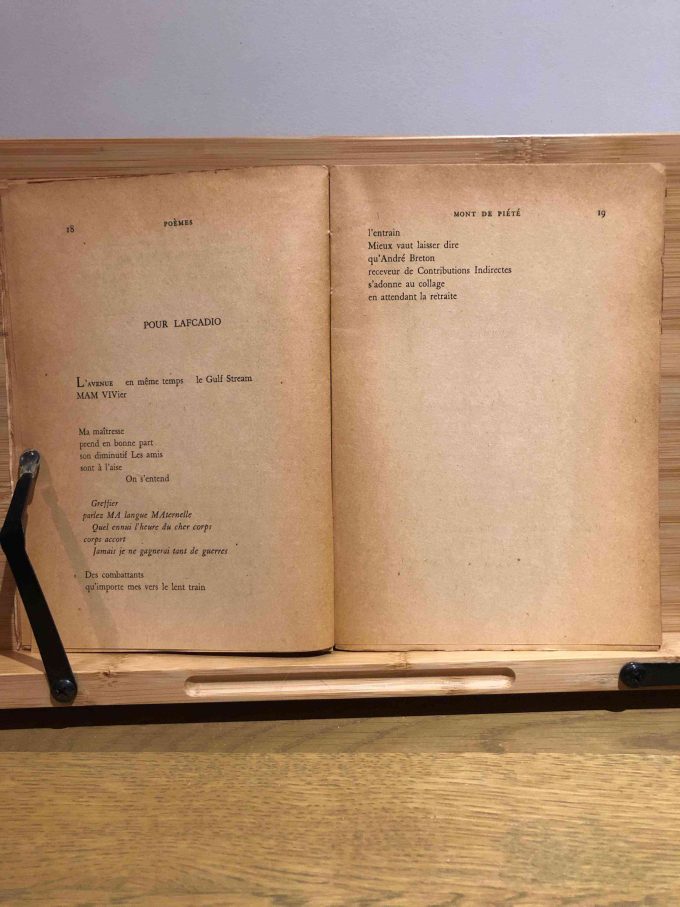 18
POÈMES
POUR LAFCADIO
L'AVENUE en même temps le Gulf Stream
MAM VIVier
Ma maîtresse
prend en bonne part
son diminutif Les amis
sont à l'aise
On s'entend
Greffier
parlez MA langue MAternelle
Quel ennui l'heure du cher corps
corps accort
Jamais je ne gagnerai tant de guerres
Des combattants
qu'importe mes vers le lent train
MONT DE PIÉTÉ
19
l'entrain
Mieux vaut laisser dire
qu'André Breton
receveur de Contributions Indirectes
s'adonne au collage
en attendant la retraite